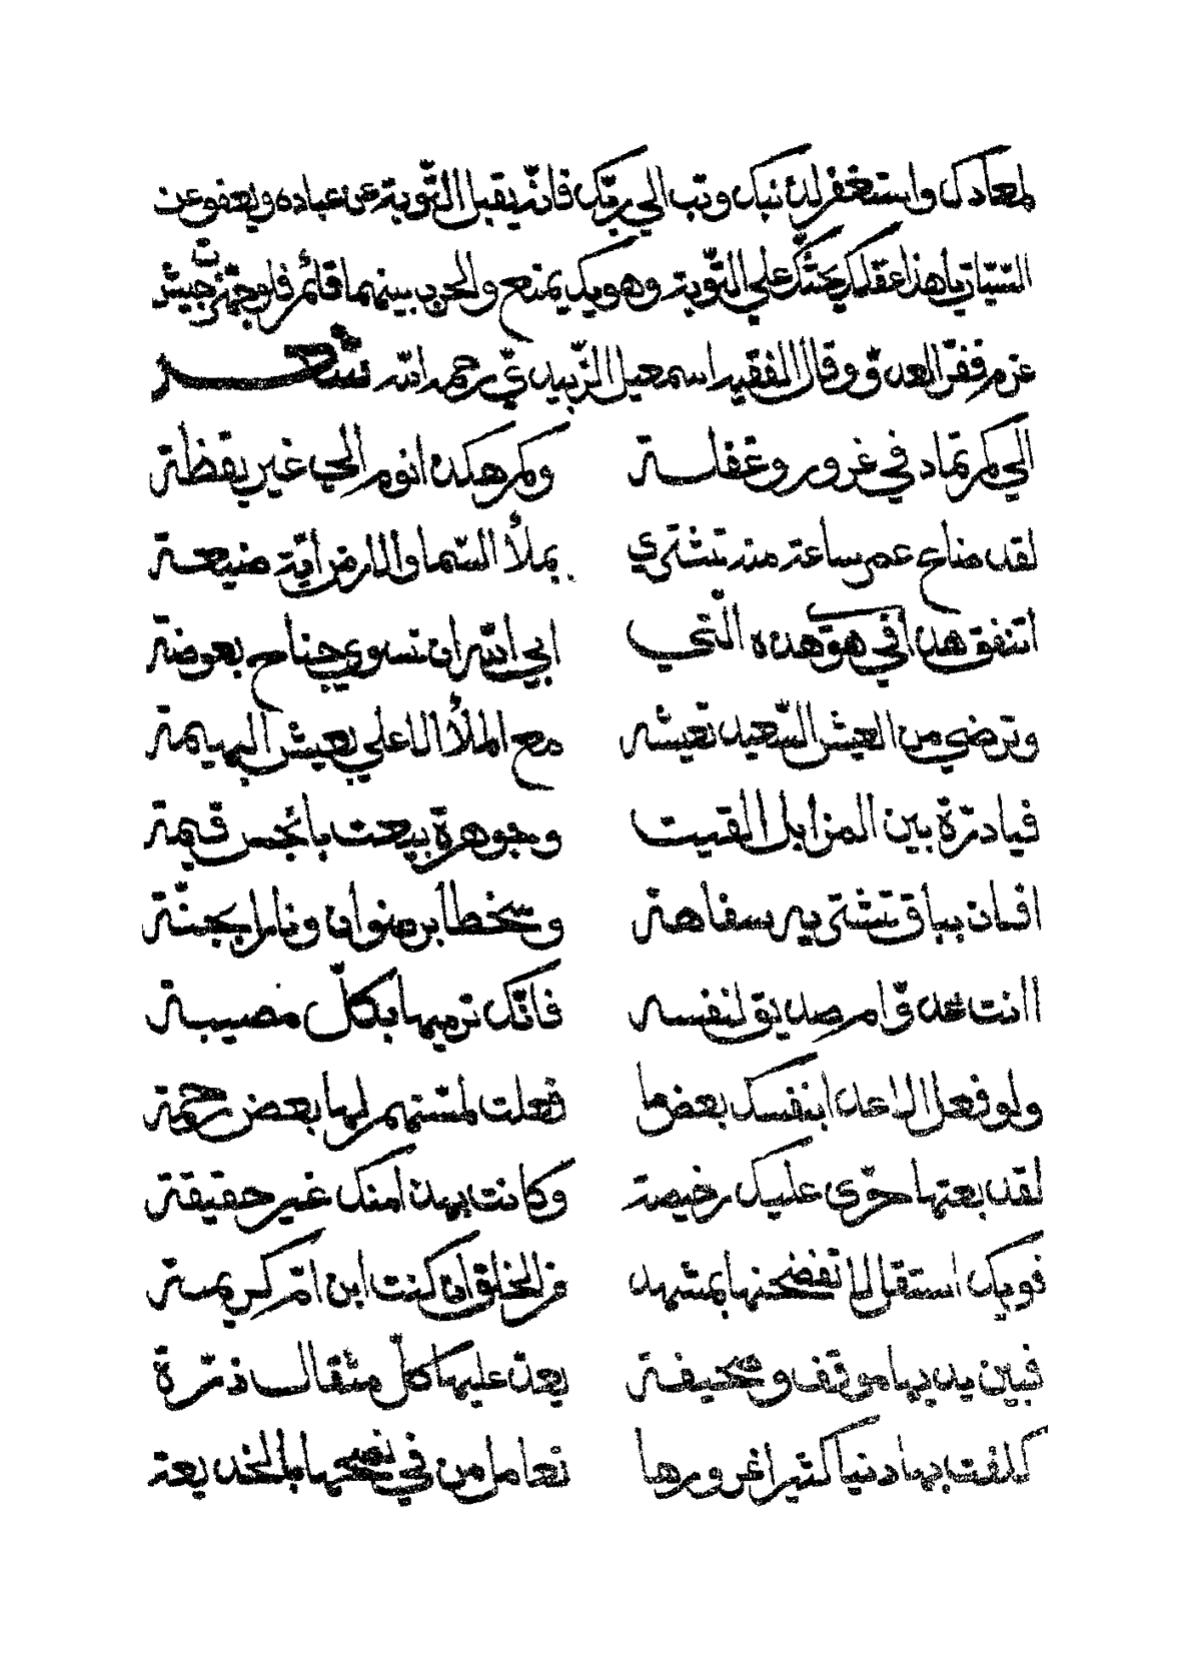 لمعادك واستغفر لذنبك وتب الي ربك فانّه يقبل التّوبة عن عباده ويعفو عن
السّيّات يا هذا عقلك يحثّك علي التّوبة وهويك يمنع والحرب بينهما قائم فلو جهّزت جيش
عزم فرّ العدوّ وقال الفقيه اسمعيل الزّبيدي رحمه الله شعر
الي كم تماد في غرور وغفلة وكم هكذا نوم الي غير يقظة
لقد ضاع عمر ساعة منه تشتري بملأ السّما والارض أيّة ضيعة
اتنفق هذا في هوي هذه الّتي ابي الله ان تسوي جناح بعوضة
وترضي من العيش السّعيد تعيشه مع الملأ الاعلي بعيش البهيمة
فيا درّة بين المزابل القيت وجوهرة بيعت بابخس قيمة
افان بباق تشتريه سفاهة وسخطا برضوان ونارا بجنّة
اانت عدوّ ام صديق لنفسه فانّك ترميها بكلّ مصيبة
ولو فعل الاعدا بنفسك بعض ما فعلت لمسّتهم لها بعض رحمة
لقد بعتها حزي عليك رخيصة وكانت بهذا منك غير حقيقة
فويك استقل لا تفضحنها بمشهد من الخلق ان كنت ابن امّ كريمة
فبين يديها موقف وصحيفة يعدّ عليها كلّ مثقال ذرّة
كلفت بها دنيا كثيرا غرورها تعامل من في نصحها بالخديعة